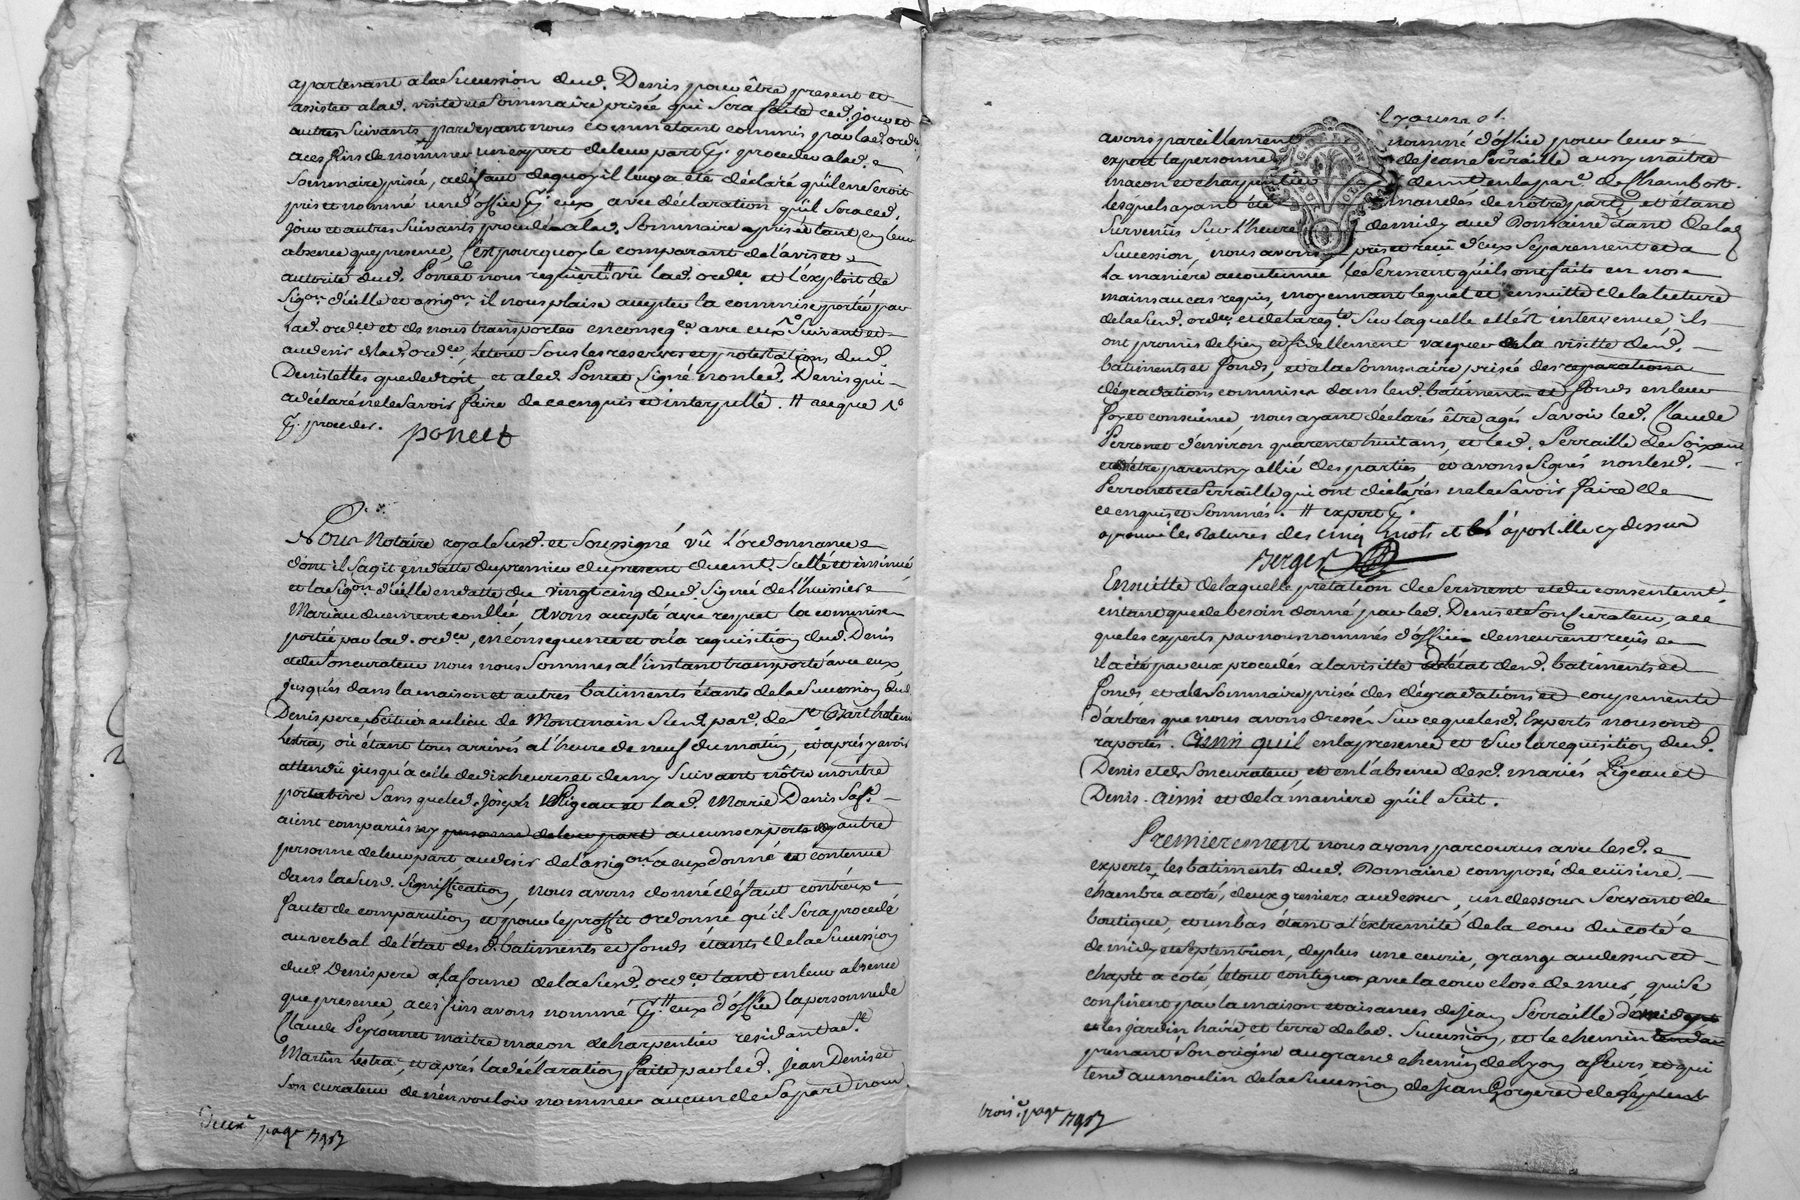 appartenant a la Succession dud. Denis pour être present et
assister a lad. visite et Sommaire prisée qui Sera faite ced. jour et
autres Suivants pardevant nous comme étant commis par lad. ord.ce
a ces fins de nommer un expert de leur part pr. proceder a lad.
Sommaire prisée, a défaut de quoy il leur a été déclaré qu'il en Seroit
pris et nommé un d'office pr. eux avec déclaration qu'il Sera ced.
jour et autres Suivants procédé a lad. Sommaire prisée tant en leur
absence que presence, C'est pourquoy le comparant de l'avis et
autorité dud. Poncet nous requiert vû lad. ord.ce et l'exploit de
Sign.on d'icelle et assig.on il nous plaise accepter la commise portée par
lad. ord.ce et de nous transporter en conseq.ce avec eux Suivant et
au desir de lad. ord.ce, le tout Sous les reserves et protestations dud.
Denis telles que de droit, et a led. Poncet Signé non led. Denis qui
a declaré ne le Savoir faire de ce enquis et interpellé. # ce que
pr. proceder. poncet
Nous Notaire royal Susd. et Soussigné vû l'ordonnance
dont il s'agit en datte du premier du present duemt. Scellé et insinué
et la Sign.on d'icelle en datte du vingt cinq dud. Signée de l'huissier
Mariau duement conllée avons accepté avec respect la commise
portée par lad. ord.ce, en conséquence et a la requisition dud. Denis
et de Son curateur nous nous Sommes a l'instant transporté avec eux
jusques dans la maison et autres batiments étants de la Succession dud.
Denis pere Scitués au lieu de Montmain Susd. par.e de St. Barthelemi
Lestra, où étant tous arrivés a l'heure de neuf du matin, et après y avoir
attendû jusqu'à celle de dix heures et demy Suivant nôtre montre
portative Sans que led. Joseph Pigeau et lad. Marie Denis Sa fe.
aient comparûs ny personne de leur part aucuns experts ny autre
personne de leur part au desir de l'assig.on a eux donné et contenue
dans la Susd. Signiffication, nous avons donné défaut contr'eux
faute de comparution et pour le proffit ordonné qu'il Sera procedé
au verbal de l'état des d. batiments et fonds étants de la Succession
dud. Denis pere a la forme de la Susd. ord.ce tant en leur absence
que presence, a ces fins avons nommé pr. eux d'office la personne de
Claude Peyronnet maitre macon et charpentier residant a St.
Martin Lestra, et après la déclaration faite par led. Jean Denis et
Son curateur de n'en vouloir nommer aucun de Sa part nous
Deux.e page
avons pareillement nommé d'office pour leur
expert la personne de Jean Serraille aussy maitre
macon et charpentier demt. en la par.e de Chambost.
lesquels ayant été mandés de notre part, et étant
Survenûs Sur l'heure de midy aud. Domaine étant de lad.
Succession, nous avons pris et reçu d'eux Séparement et a
la maniere accoutumée le Serment qu'ils ont faits en nos
mains au cas requis, moyennant lequel et ensuitte de la lecture
de la Susd. ord.ce et de la req.te Sur laquelle elle est intervenue ils
ont promis de bien et fidellement vacquer a la visitte desd.
batiments et fonds, et a la Sommaire prisée des reparations
dégradations commises dans lesd. batiments et fonds en leur
foy et conscience, nous ayant déclarés être agés Savoir led. Claude
Perronet d'environ quarente huit ans, et led. Serraille de Soixante
et n'être parents ny allié des parties et avons Signés non lesd.
Perronet et Serraille qui ont déclarés ne le Savoir faire de
ce enquis et Sommés. # expert pr.
aprouvé les ratures des cinq mots et l'apostille cy dessus
Berger
Ensuitte de laquelle prétation de Serment et du consentemt.
en tant que de besoin donné par led. Denis et Son curateur, a ce
que les experts par nous nommés d'office demeurent reçûs
il a été par eux procedés a la visitte et état desd. batiments et
fonds et a la Sommaire prisée des dégradations et coupements
d'arbres que nous avons dressés Sur ce que lesd. Experts nous ont
raportés. Ainsi qu'il en la presence et Sur la requisition dud.
Denis et de Son curateur et en l'absence desd. mariés Pigeau et
Denis. ainsi et de la maniere qu'il Suit.
Premierement nous avons parcourus avec lesd.
experts les batiments dud. Domaine composés de cuisine,
chambre a coté, deux greniers au dessus, un dessous Servant de
boutique, et un bas étant a l'éxtremité de la cour du coté
de midy et Septentrion, de plus une ecurie, grange au dessus et
chapit a coté, le tout contigu avec la cour close de murs, qui Se
confinent par la maison et aisances de Jean Serraille de
et les jardin haire et terre de lad. Succession, et le chemin tendant
prenant Son origine au grand chemin de Lyon a feurs et qui
tend au moulin de la Succession de Jean Gorgeret de
trois.e page